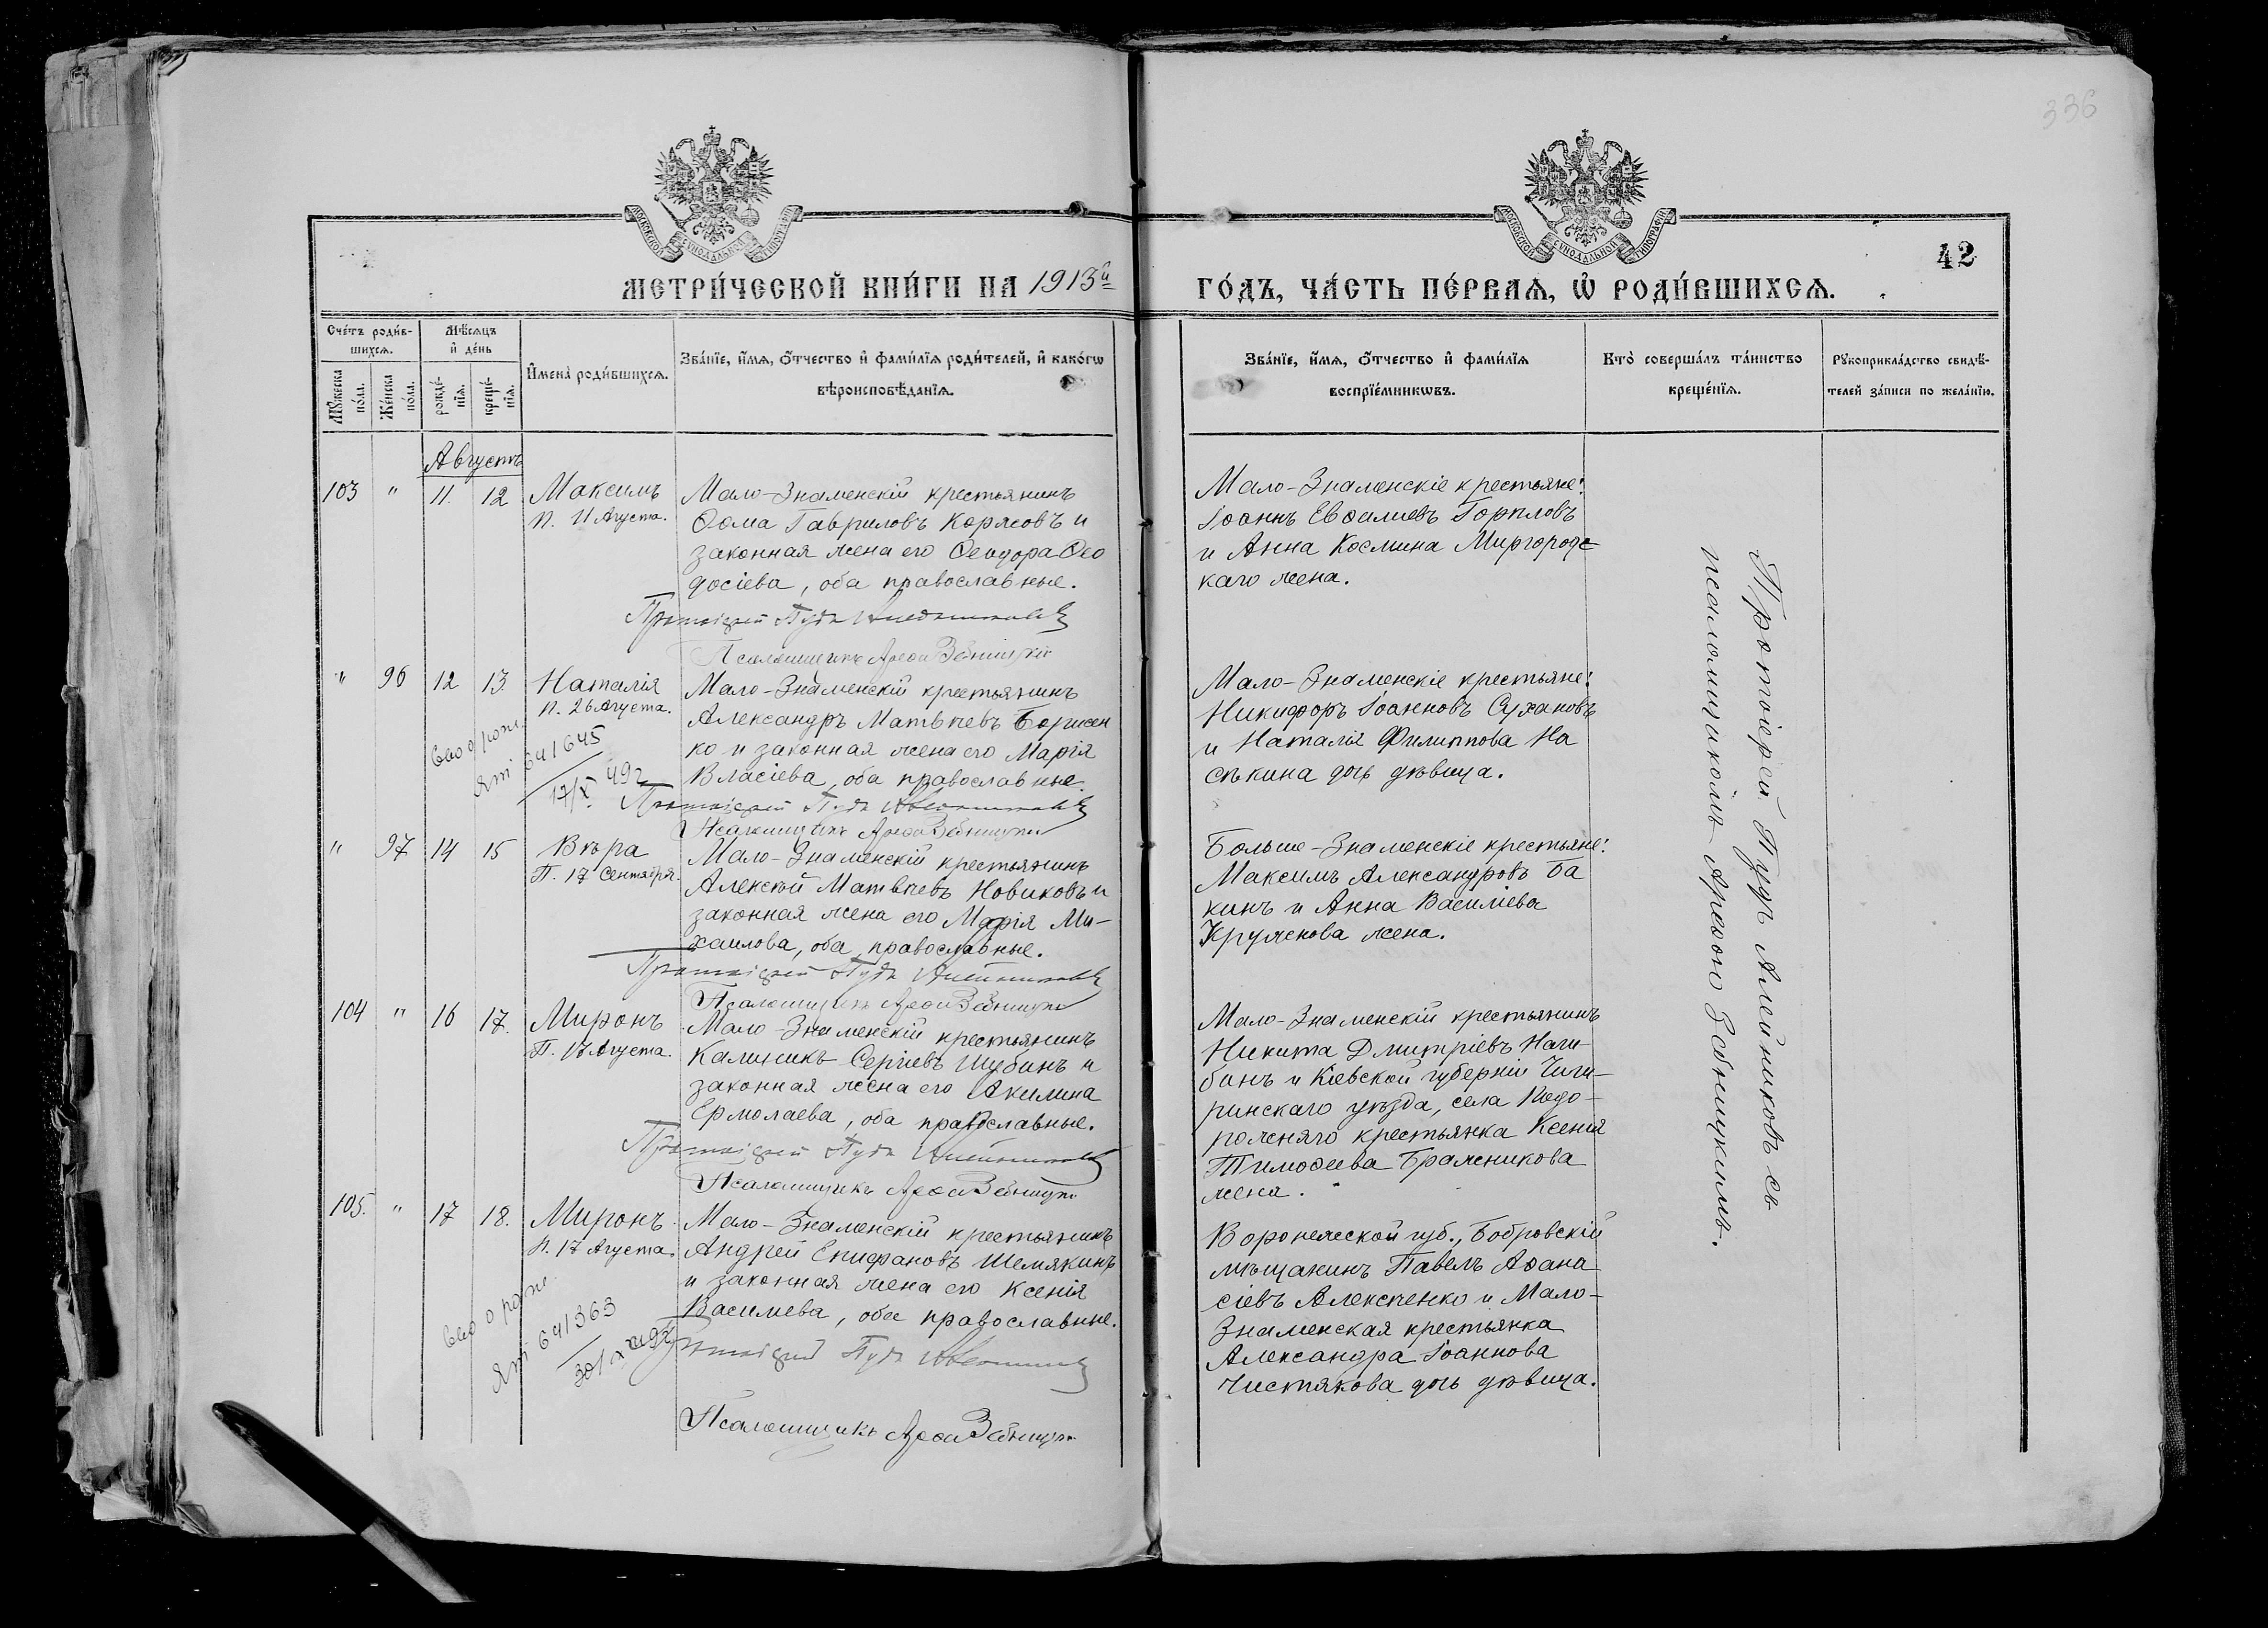 336
МОСКОВСКОЙ СѴНОДАЛЬНОЙ ТИПОГРАФІИ
МОСКОВСКОЙ СѴНОДАЛЬНОЙ ТИПОГРАФІИ
42
МЕТРИ́ЧЕСКОЙ КНИ́ГИ НА 1913й
ГО́ДЪ, ЧА́СТЬ ПЕ́РВАѦ, Ѡ҆ РОДИ́ВШИХСѦ.
Сче́тъ роди́в-
шихсѧ.
Мѣ́сѧцъ
и҆ де́нь
Мꙋ́жеска по́ла.
Же́нска по́ла.
рожде́-
нїѧ.
креще́-
нїѧ.
И҆мена̀ роди́вшихсѧ.
Зва́нїе, и҆́мѧ, ѻ҆́тчество и҆ фами́лїѧ роди́телей, и҆ како́гѡ
вѣроисповѣ́данїѧ.
Зва́нїе, и҆́мѧ, ѻ҆́тчество и҆ фами́лїѧ
воспрїе́мникѡвъ.
Кто̀ соверша́лъ та́инство
креще́нїѧ.
Рꙋкоприкла́дство свидѣ́-
телей за́писи по жела́нїю.
Августъ
103 " 11. 12 Максимъ
п. 11 Августа.
Мало-Знаменскій крестьянинъ
Ѳома Гавриловъ Корясовъ и
законная жена его Ѳеодора Ѳео
досіева, оба православные.
Протоіерей Пудъ Алейниковъ
Псаломщикъ Арѳои Зѣбницкій
Мало-Знаменскіе крестьяне:
Іоаннъ Евѳаміевъ Горпловъ
и Анна Космина Миргородс
каго жена.
" 96 12 13. Наталія
п. 26 Августа.
Мало-Знаменскій крестьянинъ
Александръ Матвѣевъ Борисен
ко и законная жена его Марія
Власіева, оба православные.
Протоіерей Пудъ Алейниковъ
Псаломщикъ Арѳои Зѣбницкій
641645
17/X 49г
Мало-Знаменскіе крестьяне:
Никифоръ Іоанновъ Сухановъ
и Наталія Филиппова На
сѣкина дочь дѣвица.
" 97 14 15 Вѣра
П. 17 Сентября.
Мало-Знаменскій крестьянинъ
Алексѣй Матвѣевъ Новиковъ и
законная жена его Марія Ми-
хаилова, оба православные.
Протоіерей Пудъ Алейниковъ
Псаломщикъ Арѳои Зѣбницкій
Больше-Знаменскіе крестьяне:
Максимъ Александровъ Ба
кинъ и Анна Василіева
Круженова жена.
104 " 16 17. Миронъ
П. 17 Августа.
Мало-Знаменскій крестьянинъ
Калиникъ Сергіевъ Шубинъ и
законная жена его Акилина
Ермолаева, оба православные.
Протоіерей Пудъ Алейниковъ
Псаломщикъ Арѳои Зѣбницкій
Мало-Знаменскій крестьянинъ
Никита Дмитріевъ Наги-
бинъ и Кіевской губерніи Чиги-
ринскаго уѣзда, села Подо-
рожняго крестьянка Ксенія
Тимоѳеева Бражникова
жена.
105. " 17 18. Миронъ
п. 17 Августа
Мало-Знаменскій крестьянинъ
Андрей Епифановъ Шемякинъ
и законная жена его Ксенія
Василіева, оба православные.
Протоіерей Пудъ Алейниковъ
Псаломщикъ Арѳои Зѣбницкій
641363
Воронежской губ., Бобровскій
мѣщанинъ Павелъ Аѳана
сіевъ Алексѣенко и Мало-
Знаменская крестьянка
Александра Іоаннова
Чистякова дочь дѣвица.
Протоіерей Пудъ Алейниковъ съ
псаломщикомъ Арѳою Зѣбницкимъ.